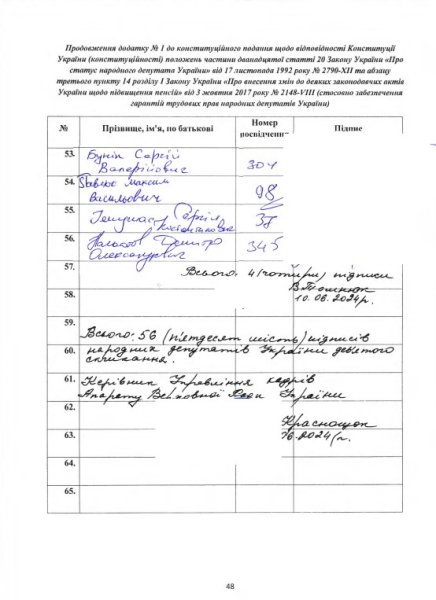 Продовження додатку № 1 до конституційного подання щодо відповідності Конституції
України (конституційності) положень частини дванадцятої статті 20 Закону України «Про
статус народного депутата України» від 17 листопада 1992 року № 2790-XII та абзацу
третього пункту 14 розділу I Закону України «Про внесення змін до деяких законодавчих актів
України щодо підвищення пенсій» від 3 жовтня 2017 року № 2148-VIII (стосовно забезпечення
гарантій трудових прав народних депутатів України)
№ Прізвище, ім'я, по батькові Номер посвідчення Підпис
53. Бунін Сергій
Валерійович 304
54. Павлюк Максим
Васильович 98
55. Сергій
Костянтинович 37
56. Дмитро
Олександрович 345
57. Всього: 4 (чотири) підписи
58. 10.06.2024р.
59. Всього: 56 (п'ятдесят шість) підписів
60. народних депутатів України дев'ятого
скликання.
61. Керівник Управління кадрів
Апарату Верховної Ради України
62. Краснощок
63.
64.
65.
48